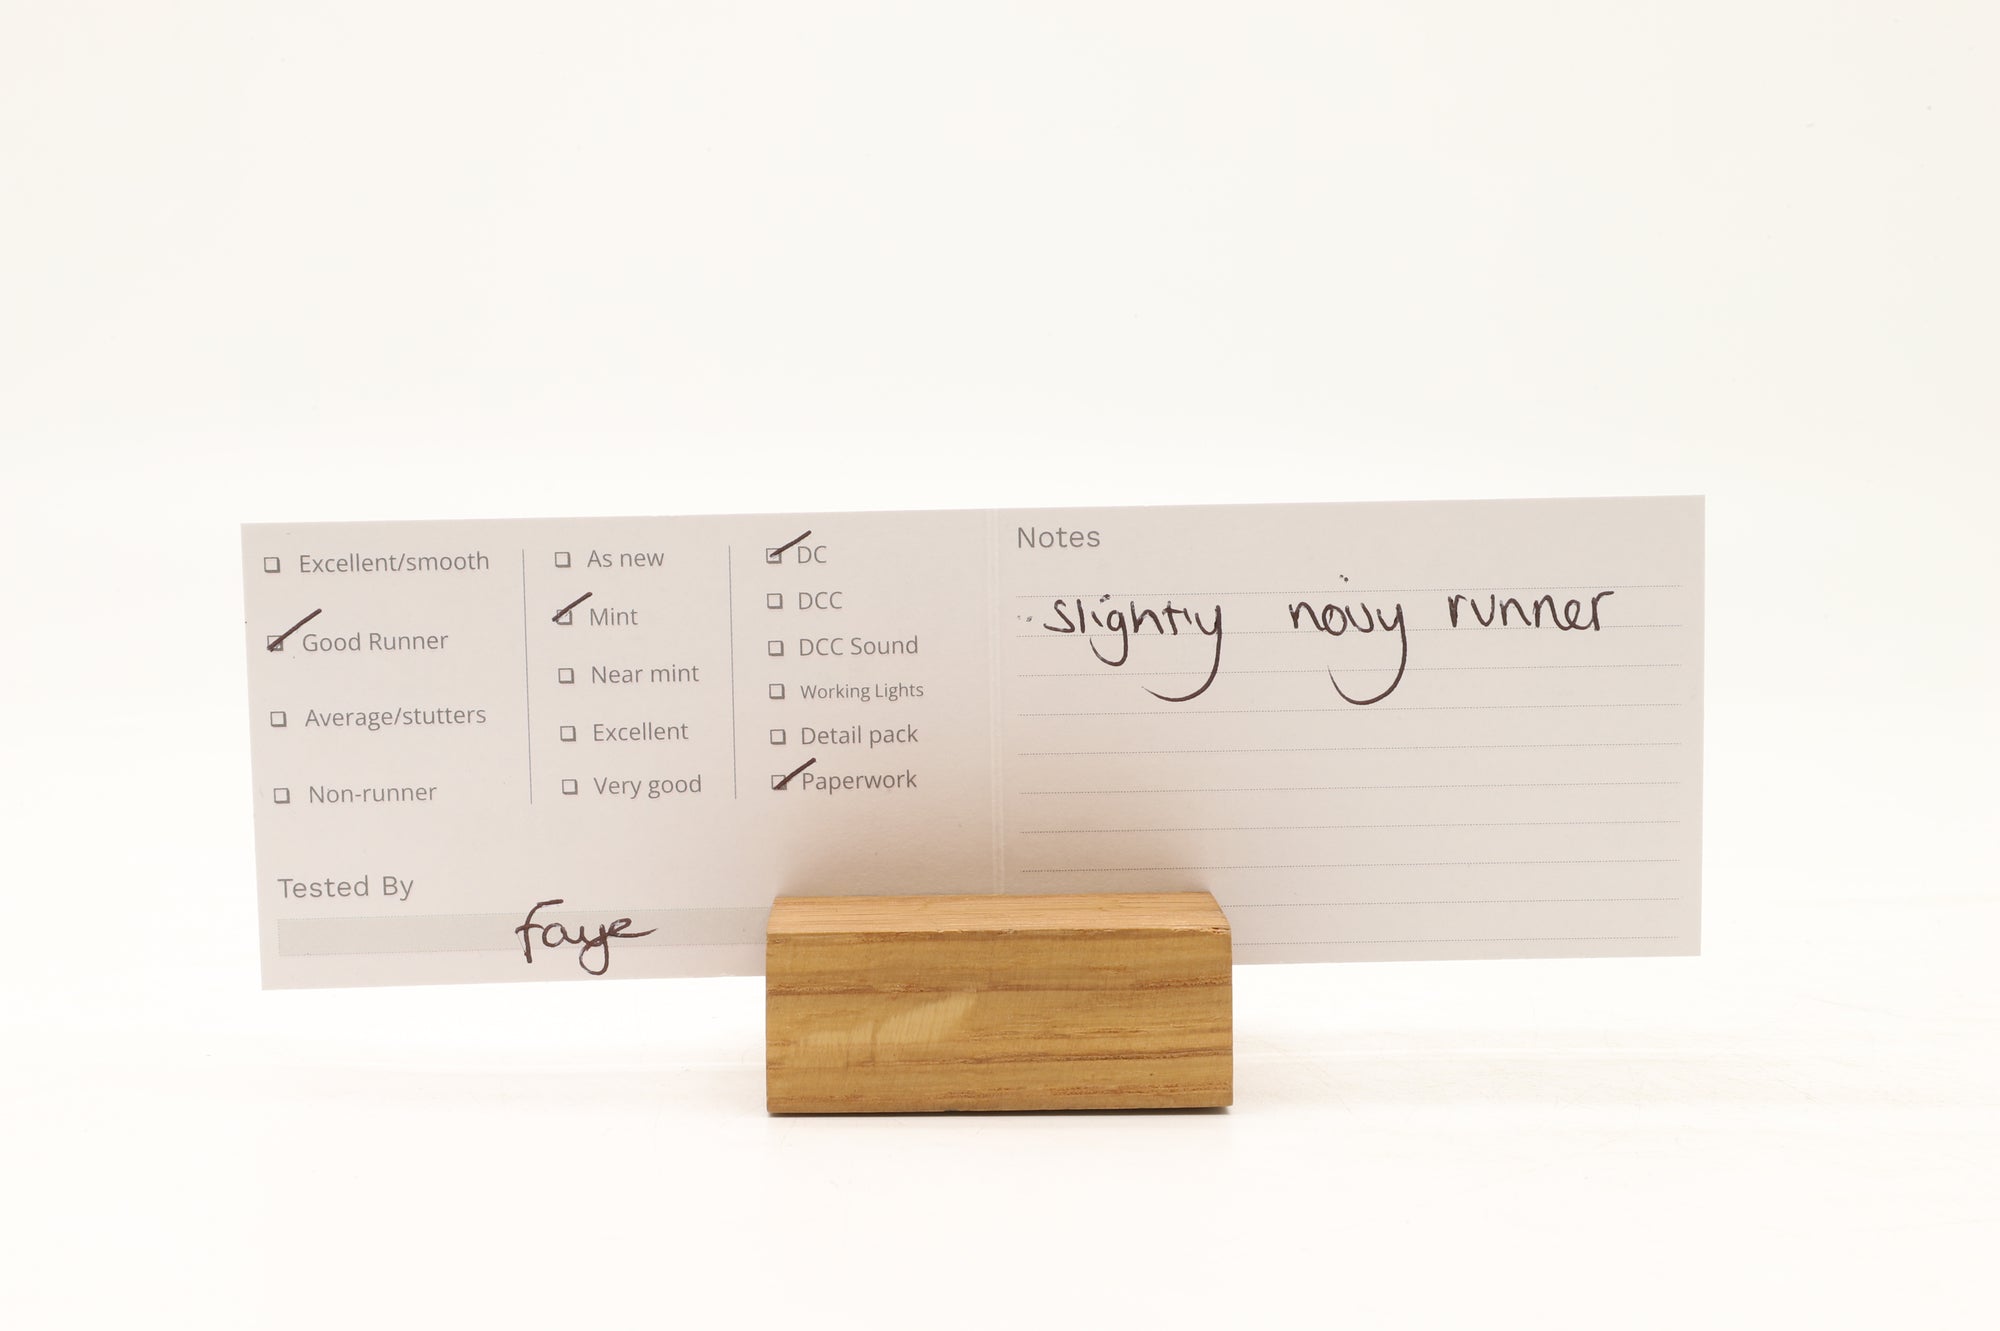 Excellent/smooth
Good Runner
Average/stutters
Non-runner
As new
Mint
Near mint
Excellent
Very good
DC
DCC
DCC Sound
Working Lights
Detail pack
Paperwork
Tested By
faye
Notes
slightly runner